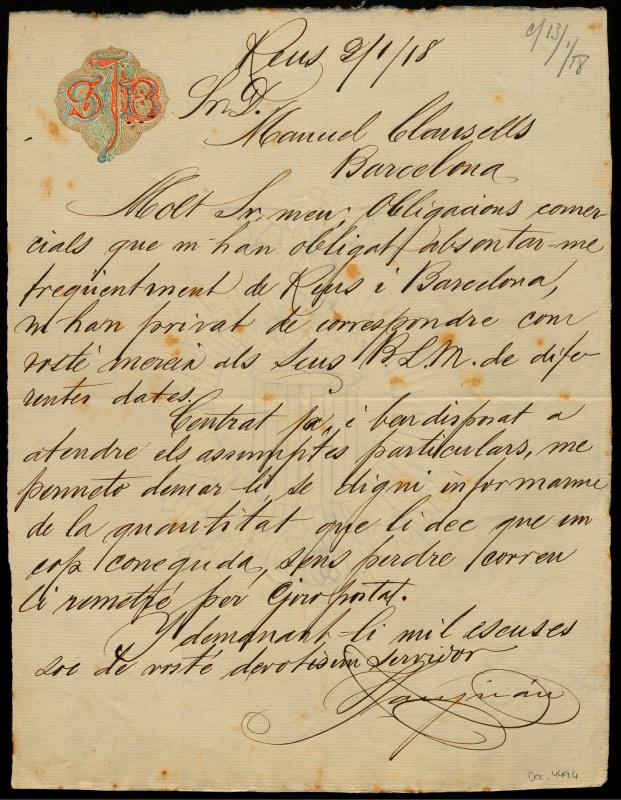 SJB
c/13/1/18
Reus 2/1/18
Sr. D.
Manuel Clausells
Barcelona
Molt Sr. meu; Obligacions comer
cials que m han obligat absontar-me
freqüentment de Reus i Barcelona,
m han privat de correspondre com
vosté mereix als seus B.L.M. de dife-
rentes dates.
Centrat ja, i ben disposat a
atendre els assumptes particulars, me
permeto demar-li, se digni informarme
de la quantitat que li dec que un
cop coneguda, sens perdre correu
li remetré per Giro postat.
I demanant-li mil escuses
soc de vosté devotissim servidor
Doc. 4494